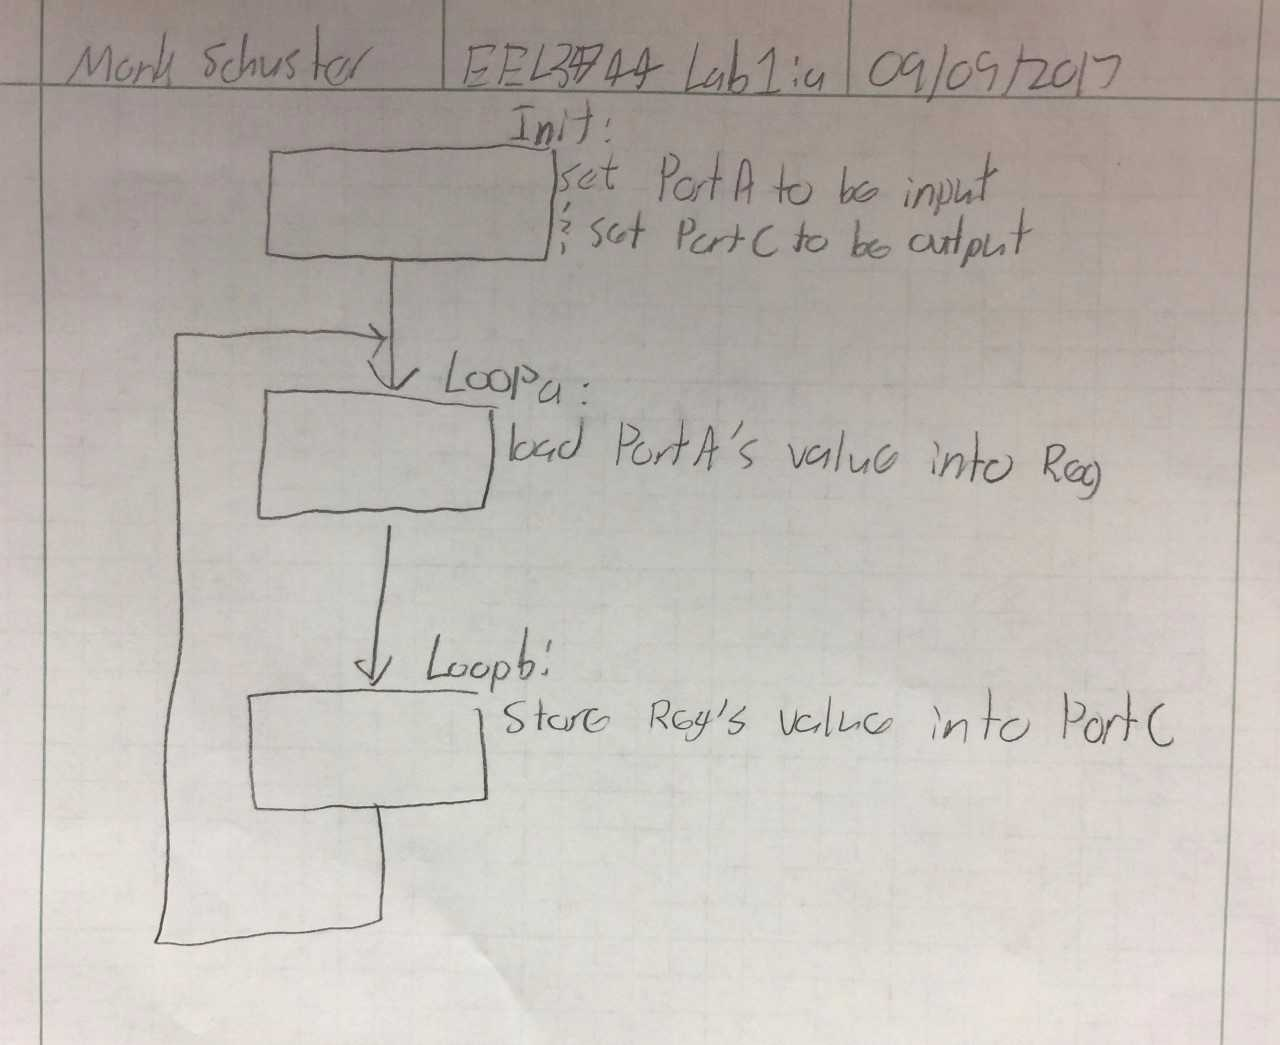 Mark Schuster
EEL3744 Lab1:a
09/09/2017
Init:
set PortA to be input
; set PortC to be output
Loopa:
load PortA's value into Reg
Loopb:
Store Reg's value into PortC